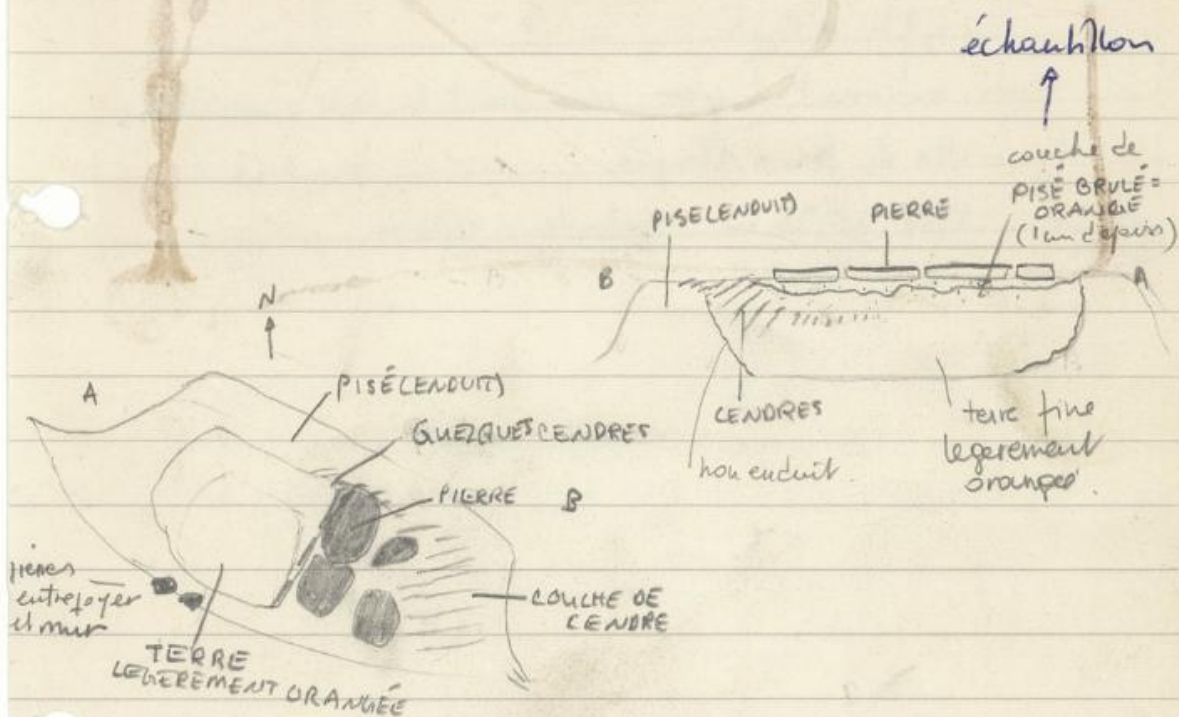 échantillon
couche de
PISÉ BRULÉ =
ORANGÉ
(1cm d'épaiss)
PISE (ENDUIT)
PIERRE
B
A
CENDRES
non enduit
terre fine
legerement
orangée.
N
A
PISÉ (ENDUIT)
QUELQUES CENDRES
PIERRE
B
pierres
entre foyer
et mur
COUCHE DE
CENDRE
TERRE
LEGEREMENT ORANGÉE